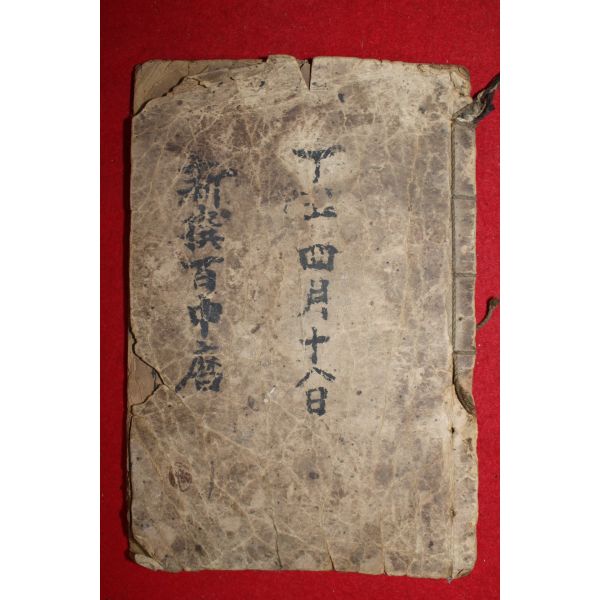 丁丑四月十八日
新撰百中曆